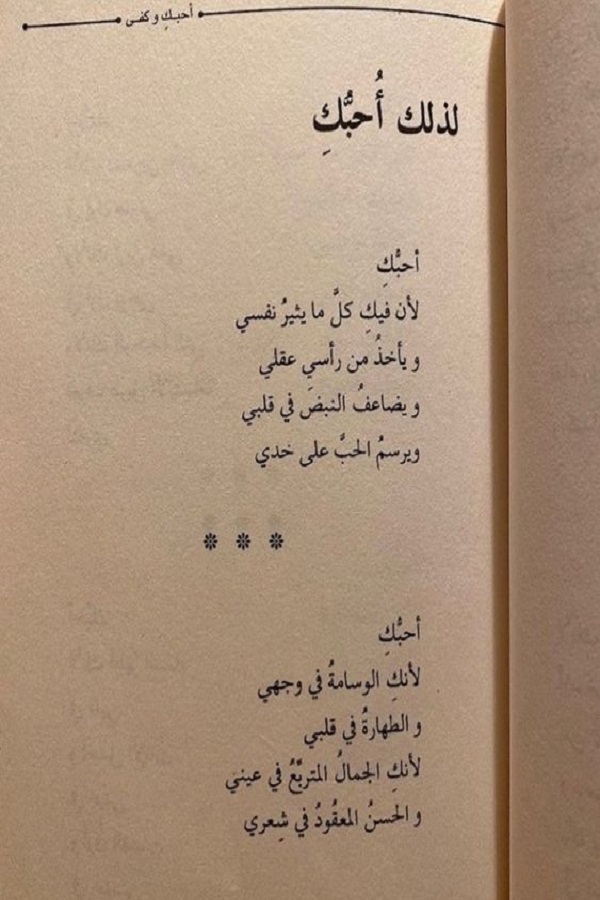 أحبكِ وكفى
لذلك أُحبُّكِ
أحبُّكِ
لأن فيكِ كلَّ ما يثيرُ نفسي
و يأخذُ من رأسي عقلي
و يضاعفُ النبضَ في قلبي
ويرسمُ الحبَّ على خدي
* * *
أحبُّكِ
لأنكِ الوسامةُ في وجهي
و الطهارةُ في قلبي
لأنكِ الجمالُ المتربّعُ في عيني
و الحسنُ المعقُودُ في شِعري